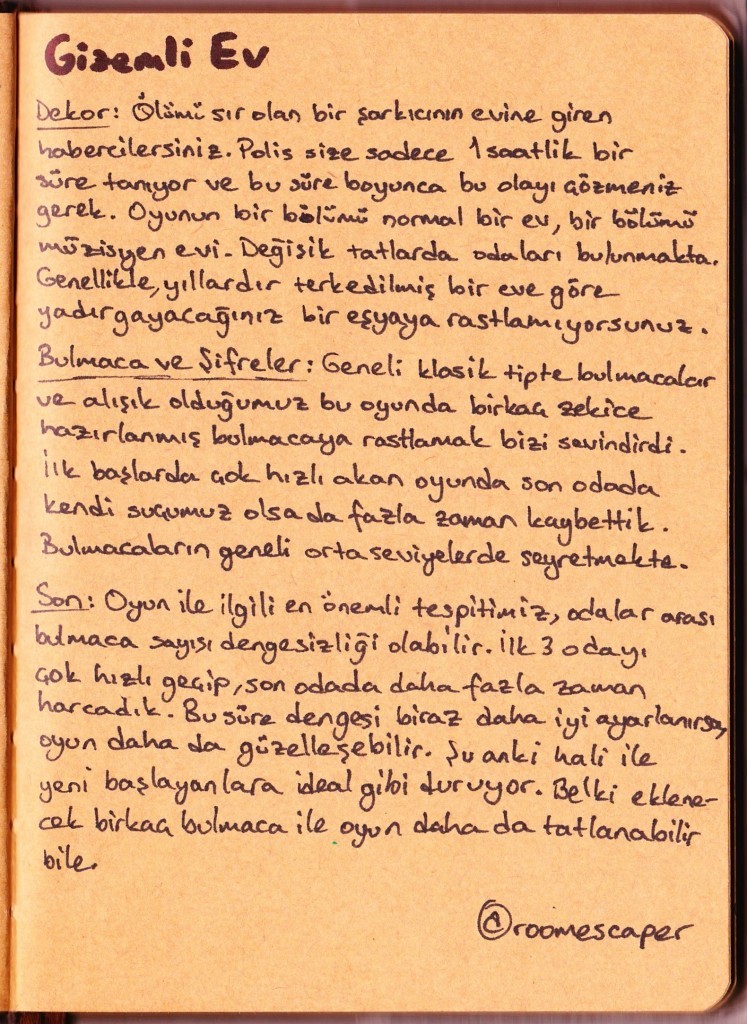 Gizemli Ev
Dekor: Ölümü sır olan bir şarkıcının evine giren
habercilersiniz. Polis size sadece 1 saatlik bir
süre tanıyor ve bu süre boyunca bu olayı çözmeniz
gerek. Oyunun bir bölümü normal bir ev, bir bölümü
müzisyen evi. Değişik tatlarda odaları bulunmakta.
Genellikle, yıllardır terkedilmiş bir eve göre
yadırgayacağınız bir eşyaya rastlamıyorsunuz.
Bulmaca ve Şifreler: Geneli klasik tipte bulmacalar
ve alışık olduğumuz bu oyunda birkaç zekice
hazırlanmış bulmacaya rastlamak bizi sevindirdi.
İlk başlarda çok hızlı akan oyunda son odada
kendi suçumuz olsa da fazla zaman kaybettik.
Bulmacaların geneli orta seviyelerde seyretmekte.
Son: Oyun ile ilgili en önemli tespitimiz, odalar arası
bulmaca sayısı dengesizliği olabilir. İlk 3 odayı
çok hızlı geçip, son odada daha fazla zaman
harcadık. Bu süre dengesi biraz daha iyi ayarlanırsa,
oyun daha da güzelleşebilir. Şu anki hali ile
yeni başlayanlara ideal gibi duruyor. Belki eklene-
cek birkaç bulmaca ile oyun daha da tatlanabilir
bile.
@roomescaper